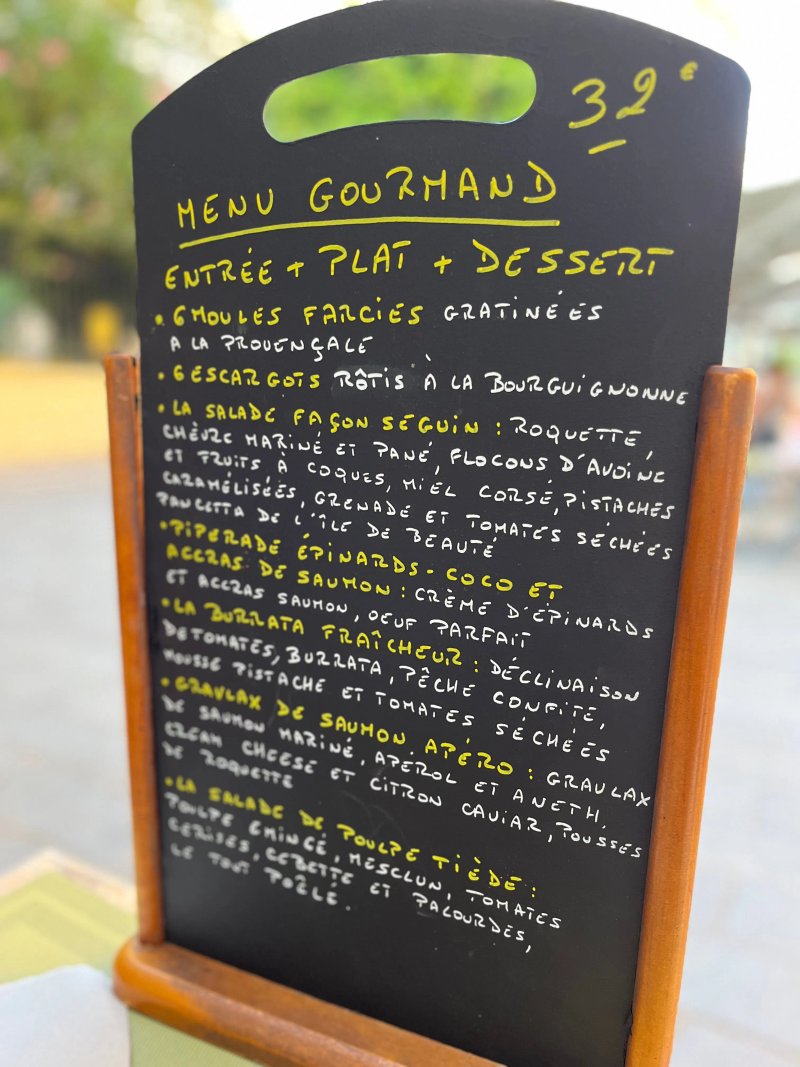 32 €
MENU GOURMAND
ENTRÉE + PLAT + DESSERT
• 6 MOULES FARCIES GRATINÉES
A LA PROVENÇALE
• 6 ESCARGOTS RÔTIS À LA BOURGUIGNONNE
• LA SALADE FAÇON SEGUIN : ROQUETTE,
CHÈVRE MARINÉ ET PANÉ, FLOCONS D'AVOINE
ET FRUITS À COQUES, MIEL CORSÉ, PISTACHES
CARAMÉLISÉES, GRENADE ET TOMATES SÉCHÉES
PANCETTA DE L'ÎLE DE BEAUTÉ
• PIPERADE ÉPINARDS-COCO ET
ACCRAS DE SAUMON : CRÈME D'ÉPINARDS
ET ACCRAS SAUMON, OEUF PARFAIT
• LA BURRATA FRAÎCHEUR : DÉCLINAISON
DE TOMATES, BURRATA, PÊCHE CONFITE,
MOUSSE PISTACHE ET TOMATES SÉCHÉES
• GRAVLAX DE SAUMON APÉRO : GRAVLAX
DE SAUMON MARINÉ, APEROL ET ANETH,
CREAM CHEESE ET CITRON CAVIAR, POUSSES
DE ROQUETTE
• LA SALADE DE POULPE TIÈDE :
POULPE EMINCÉ, MESCLUN, TOMATES
CERISES, CEBETTE ET PALOURDES,
LE TOUT POÊLÉ.